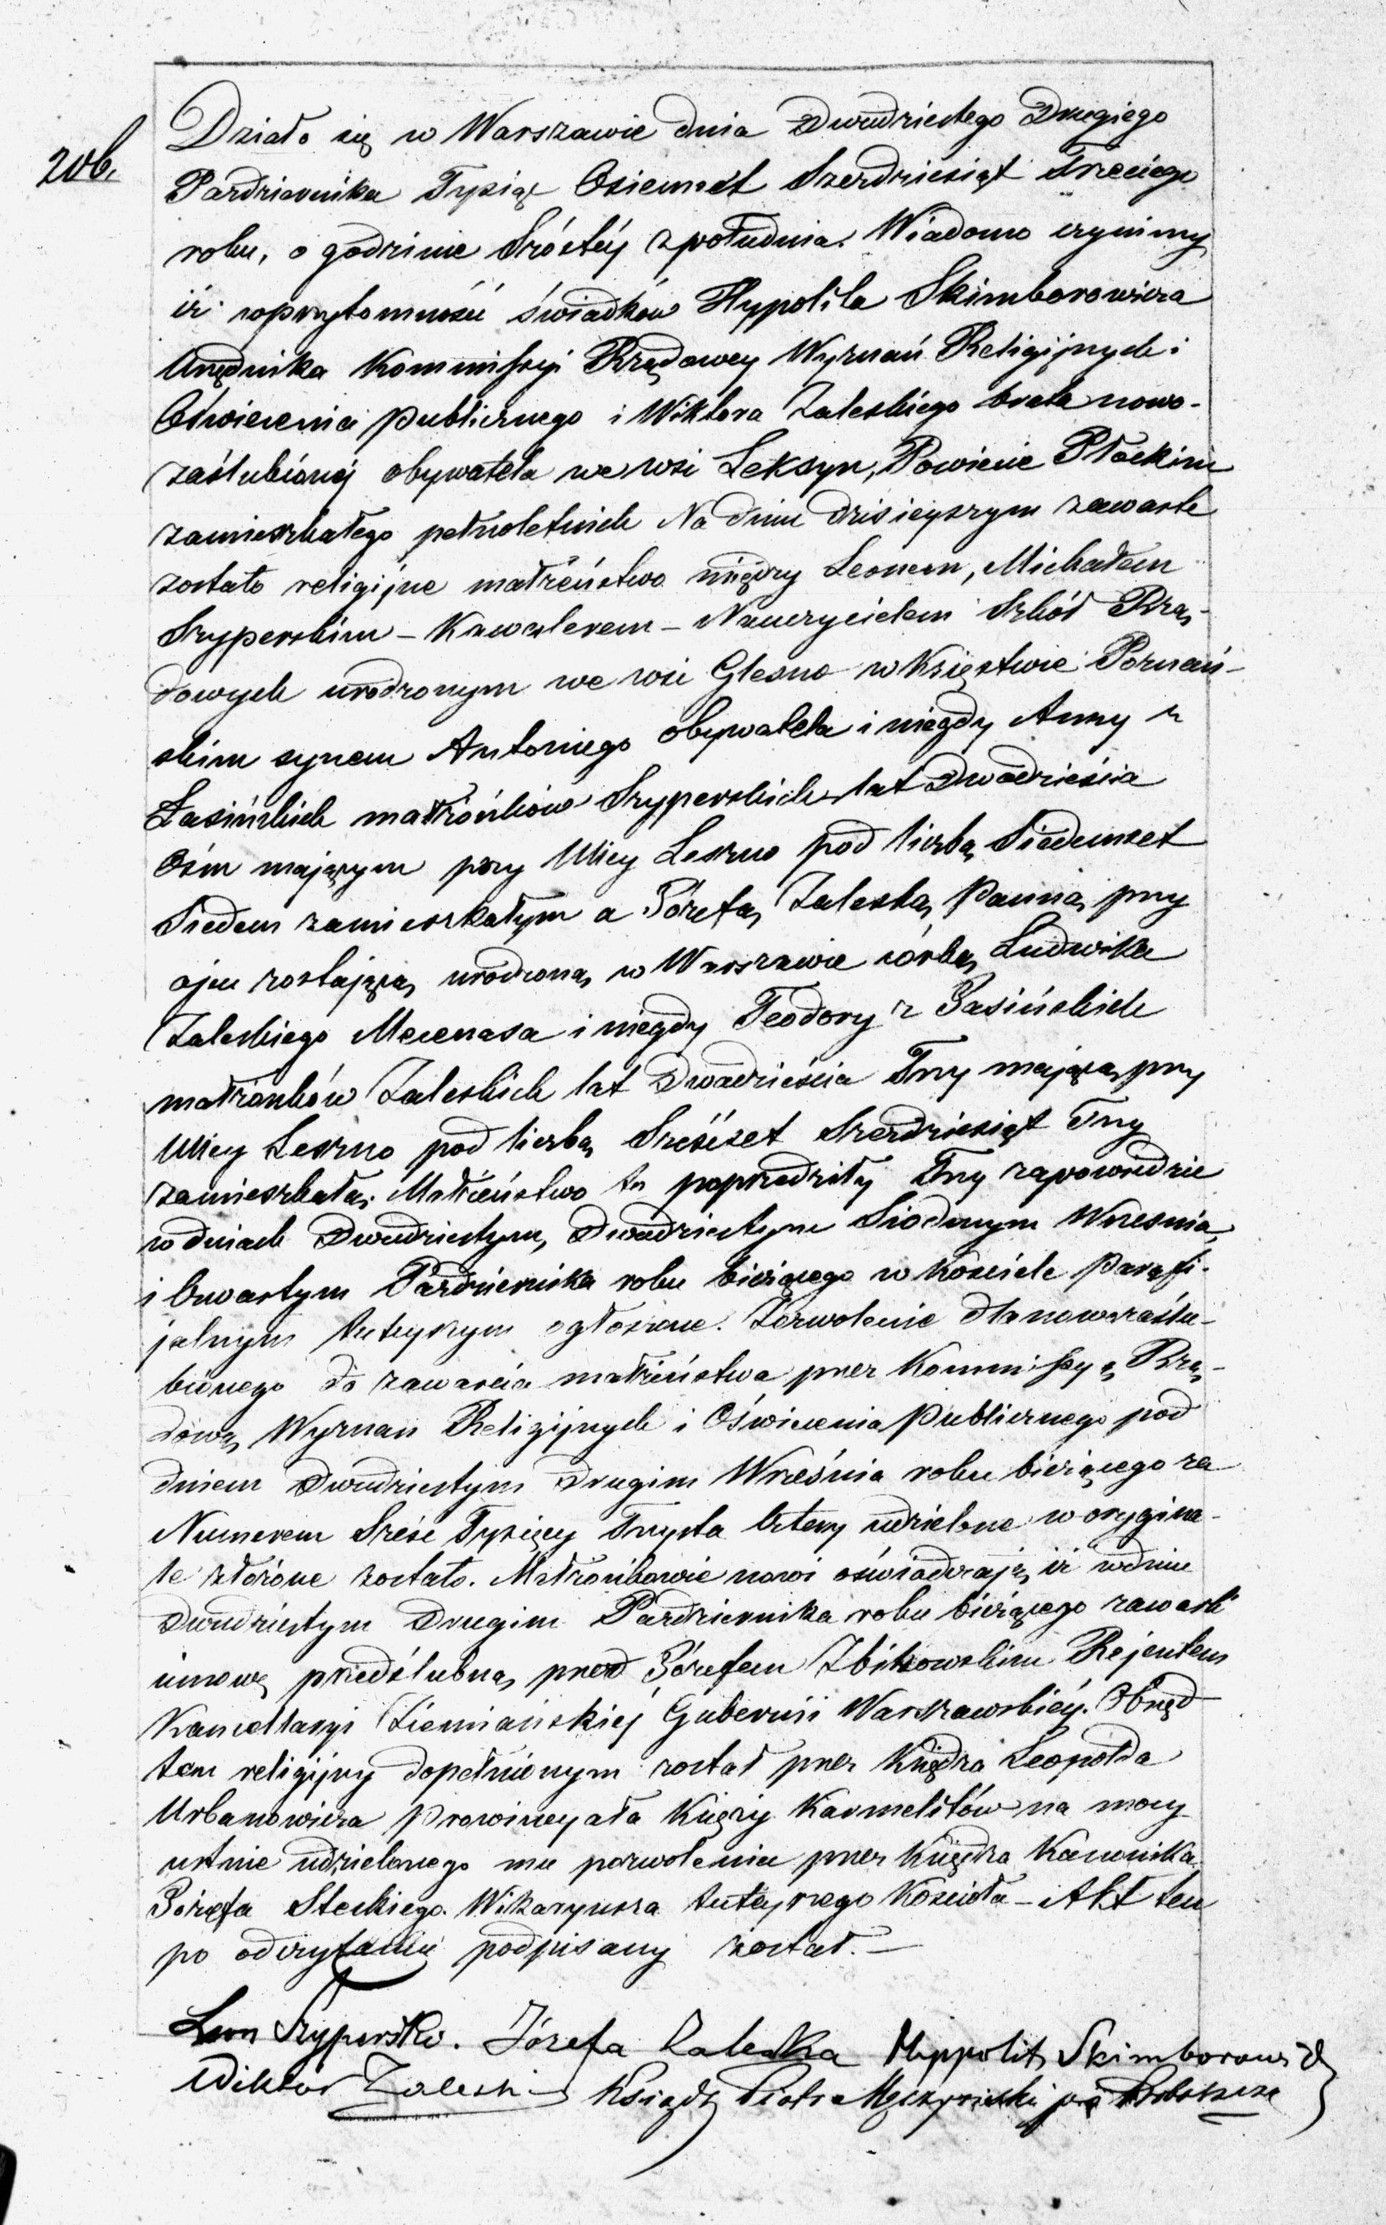 206.
Działo się w Warszawie dnia Dwudziestego Drugiego
Października Tysiąc Ośiemset Sześdziesiąt Trzeciego
roku, o godzinie Szóstéj z południa. Wiadomo czynimy
iż w przytomności świadków Hypolita Skimborowicza
Urzędnika Kommissyi Rządowey Wyznań Religijnych i
Oświecenia Publicznego i Wiktora Zaleskiego brata nowo-
zaślubionéj obywatela we wsi Leksyn, Powiecie Płockim
zamieszkałego pełnoletnich Na dniu dzisieyszym zawarte
zostało religijne małżeństwo między Leonem, Michałem
Szyperskim – Kawalerem – Nauczycielem Szkół Rzą-
dowych urodzonym we wsi Glesno w Księstwie Poznań-
skim synem Antoniego obywatela i niegdy Anny z
Łasińskich małżonków Szyperskich lat Dwadzieścia
Ośm mającym przy Ulicy Leszno pod liczbą Siedemset
Siedem zamieszkałym a Józefą Zaleską Panną przy
ojcu zostającą urodzoną w Warszawie córką Ludwika
Zaleskiego Mecenasa i niegdy Teodory z Jasińskich
małżonków Zaleskich lat Dwadzieścia Trzy mającą przy
Ulicy Leszno pod liczbą Sześćset Sześdziesiąt Trzy
zamieszkałą. Małżeństwo to poprzedziły Trzy zapowiedzie
w dniach Dwudziestym, Dwudziestym Siódmym Wrzesnia,
i Czwartym Października roku bieżącego w Kościele Parafi-
jalnym tuteyszym ogłoszone. Zezwolenie dla nowozaślu-
bionego do zawarcia małżeństwa przez Kommissyą Rzą-
dową Wyznan Religijnych i Oświecenia Publicznego pod
dniem Dwudziestym Drugim Września roku bieżącego za
Numerem Sześć Tysięcy Trzysta Cztery udzielone w orygina-
le złożone zostało. Małżonkowie nowi oświadczają iż w dniu
Dwudziestym Drugim Października roku bieżącego zawarli
umowę przedślubną przed Józefem Zbikowskim Rejentem
Kancellaryi Ziemiańskiéj Gubernii Warszawskiéy. Obrzęd
ten religijny dopełnionym został przez Księdza Leopolda
Urbanowicza Prowincyała Księży Karmelitów na mocy
ustnie udzielonego mu pozwolenia przez Księdza Kanonika
Józefa Steckiego Wikaryusza tuteyszego Kościoła – Akt ten
po odczytaniu podpisany został. –
Leon Szyperski. Józefa Zaleska Hippolit Skimborowicz
Wiktor Zaleski Ksiądz Piotr